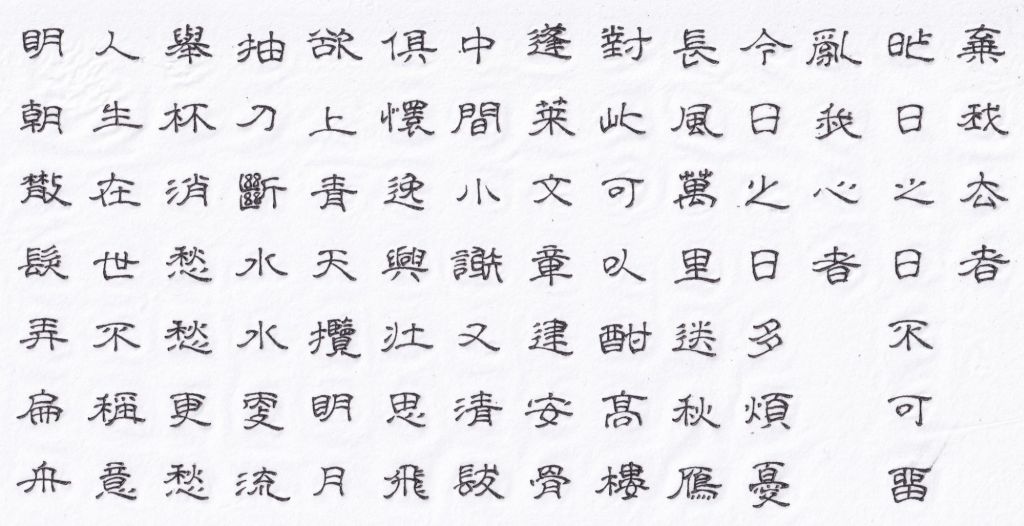 棄我去者
昨日之日不可留
亂我心者
今日之日多煩憂
長風萬里送秋雁
對此可以酣高樓
蓬萊文章建安骨
中間小謝又清發
俱懷逸興壯思飛
欲上青天攬明月
抽刀斷水水更流
舉杯消愁愁更愁
人生在世不稱意
明朝散髮弄扁舟